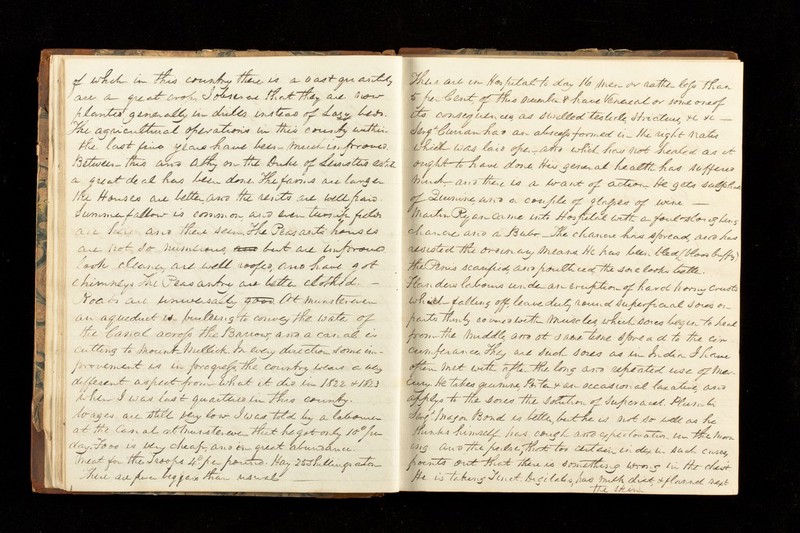 of which in this country there is a vast quantity
are a great crop. I observe that they are now
planted generally in drills instead of lazy beds.
The agricultural operations in this county within
the last five years have been much improved.
Between this and Athy on the Duke of Leinsters estate
a great deal has been done. The farms are larger
the Houses are better and the rents are well paid.
Summer fallow is common and even turnip fields
are here and there seen. The Peasants houses
are not so numerous but are improved
look cleaner, are well roofed, and have got
chimneys. The Peasantry are better clothed. —
Roads are universally good. At Monstereven
an aqueduct is building to convey the water of
the Canal across the Barrow, and a canal is
cutting to Mount Mellick. In every direction some im-
provement is in progress, the country wears a very
different aspect from what it did in 1822 & 1823
when I was last quartered in this county.
Wages are still very low I was told by a labourer
at the Canal at Monstereven that he got only 10d per
day. Food is very cheap, and in great abundance.
Meat for the Troops 4d per pound. Hay 25 Shillings a ton
There are few beggars than usual —
There are in Hospital to day 16 men or rather less than
5 per Cent, of this number 8 have Venereal or some one of
its consequences, as swelled testicle, stricture, &c &c —
Serjt Curran has an abscess formed in the right nates
which was laid open, and which has not healed as it
ought to have done. His general health has suffered
much and there is a want of action. He gets sulphate
of Quinine, and a couple of glasses of wine —
Martin Ryan came into Hospital with a foul
chancre and a Bubo — The chancre has spread, and has
resisted the ordinary means. He has been bled (blood buffy)
the Penis scarified, and poulticed, the sore looks better.
Flanders labours under an eruption of hard horny crusts
which falling off leave dirty round superficial sores on
parts thinly covered with muscles, which sores begin to heal
from the middle, and at same time spread to the cir-
cumference. They are such sores as in India I have
often met with after the long and repeated use of Mer-
cury. He takes quinine and an occasional laxative, and
applys to the sores the solution of Superacet. Plumbi
Serjt Major Bond is better, but he is not so well as he
thinks himself, has cough and expectoration in the morn
ing and the pulse, that too certain index in such cases,
points out that there is something wrong in the chest.
He is taking Tinct. Digitalis, has milk diet, & flannel next
the skin.